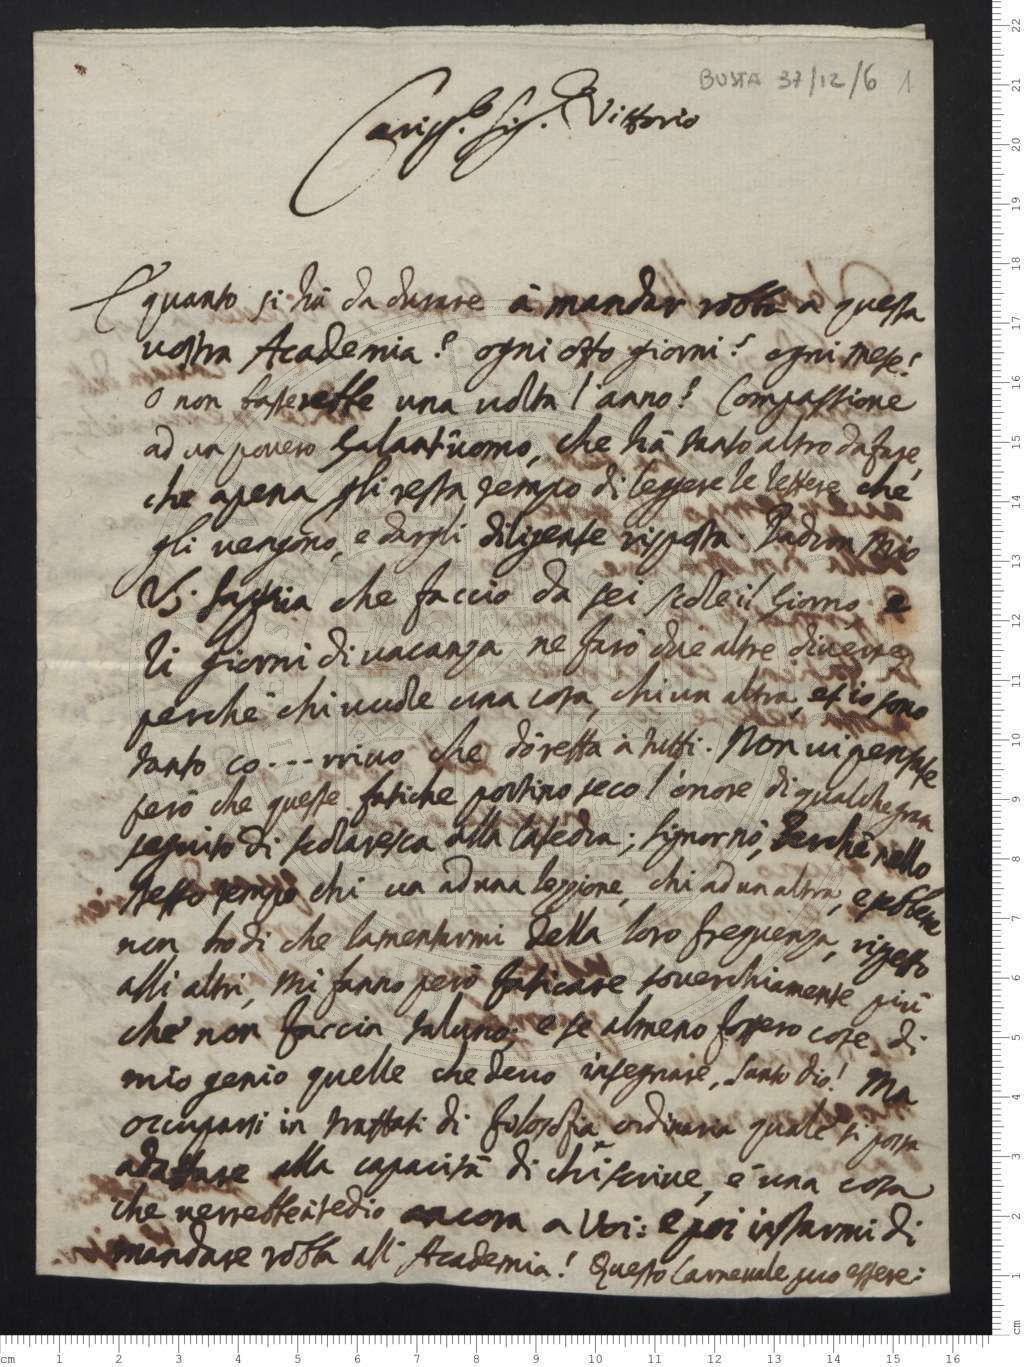 BUSTA 37/12/6 1
Cariss.º Sig.r Vittorio
E quanto si hà da durare à mandar robba a questa
vostra Academia? ogni otto giorni? ogni mese?
O non basterebbe una volta l'anno? Compassione
ad un povero Galant'uomo, che hà tanto altro da fare,
che apena gli resta tempo di leggere le lettere che
gli vengono, e dargli diligente risposta. Padron Mio
V.S. sappia che faccio da sei scole il Giorno, e
li giorni di vacanza ne farò due altre diverse,
perche chi vuole una cosa, chi un altra, et io sono
tanto co---rrivo che dò retta à tutti. Non vi pensate
però che queste fatiche portino seco l'onore di qualche gran
seguito di scolaresca alla Catedra; signornò, Perche nello
stesso tempo chi va ad una lezzione, chi ad un altra, e sebbene
non hò di che lamentarmi della loro frequenza, rispetto
alli altri, mi fanno però faticare soverchiamente più
che non faccia taluno; e se almeno fossero cose di
mio genio quelle che devo insegnare, Santo dio! Ma
occuparsi in trattati di filosofia ordinaria quale si possa
adattare alla capacità di chi scrive, è una cosa
che verrebbe à tedio ancora a Voi: e poi instarmi di
mandare robba all'Academia! Questo Carnevale può essere: